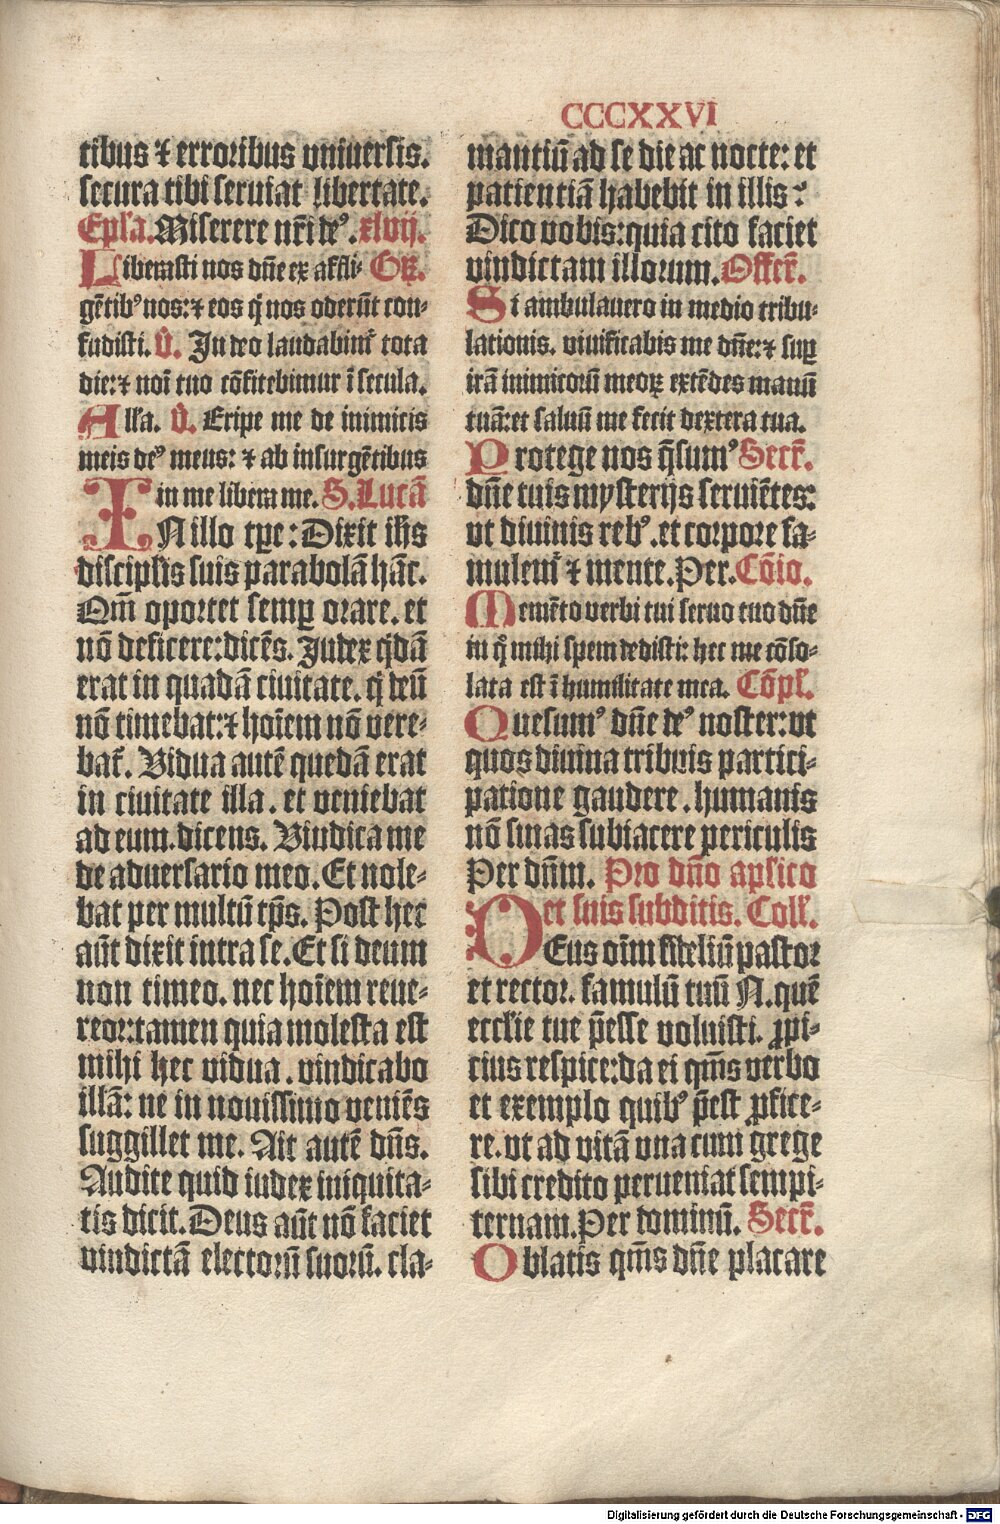 CCCXXVI
tibus ⁊ erroribus vniuersis.
secura tibi seruiat libertate.
Epl'a. Miserere nr̄i deꝰ. xlvij.
Liberasti nos dn̄e ex affli- Gꝛ̄.
gētibꝰ nos: ⁊ eos q̇ nos oderūt con-
fudisti. V̄. In deo laudabimr̄ tota
die: ⁊ noī tuo cōfitebimur ī secula.
All'a. V̄. Eripe me de inimicis
meis deꝰ meus: ⁊ ab insurgētibus
in me libera me. S. Lucā
IN illo tꝑe: Dixit ih̄s
discipl'is suis parabolā hāc.
Qm̄ oportet semꝑ orare. et
nō deficere: dicēs. Iudex q̇dā
erat in quadā ciuitate. q̇ deū
nō timebat: ⁊ hoīem nō vere-
bat̄. Vidua autē quedā erat
in ciuitate illa. et veniebat
ad eum. dicens. Vindica me
de aduersario meo. Et nole-
bat per multū tp̄s. Post hec
aūt dixit intra se. Et si deum
non timeo. nec hoīem reue-
reor: tamen quia molesta est
mihi hec vidua. vindicabo
illā: ne in nouissimo veniēs
suggillet me. Ait autē dn̄s.
Audite quid iudex iniquita-
tis dicit. Deus aūt nō faciet
vindictā electorū suorū. cla-
mantiū ad se die ac nocte: et
patientiā habebit in illis?
Dico vobis: quia cito faciet
vindictam illorum. Offer̄.
Si ambulauero in medio tribu-
lationis. viuificabis me dn̄e: ⁊ suꝑ
irā inimicorū meoꝝ extēdes manū
tuā: et saluū me fecit dextera tua.
Protege nos q̄sumꝰ Secr̄.
dn̄e tuis mysterijs seruiētes:
vt diuinis rebꝰ. et corpore fa-
mulemr̄ ⁊ mente. Per. Cōio.
Memēto verbi tui seruo tuo dn̄e
in q̊ mihi spem dedisti: hec me cōso-
lata est ī humilitate mea. Cōpl'.
Quesumꝰ dn̄e deꝰ noster: vt
quos diuina tribuis partici-
patione gaudere. humanis
nō sinas subiacere periculis
Per dn̄m. Pro dn̄o apl'ico
et suis subditis. Coll'.
DEus oīm fideliū pastor
et rector. famulū tuū N. quē
eccl'ie tue p̄esse voluisti. ꝓpi-
cius respice: da ei q̄ms verbo
et exemplo quibꝰ p̄est ꝓfice-
re. vt ad vitā vna cum grege
sibi credito perueniat sempi-
ternam. Per dominū. Secr̄.
Oblatis q̄ms dn̄e placare
Digitalisierung gefördert durch die Deutsche Forschungsgemeinschaft - DFG